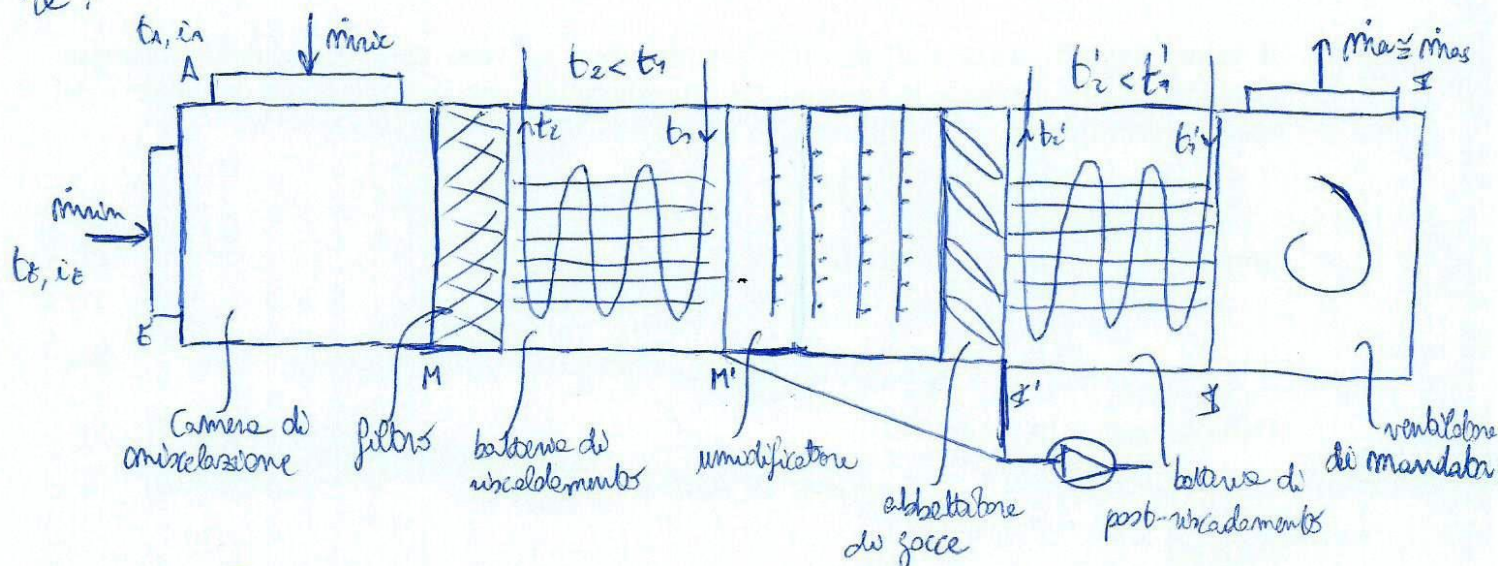 t₁, i₁
A
ṁric
t₂ < t₁
t₂' < t₁'
ṁa ≅ ṁas
I
t₂
t₁
t₂'
t₁'
ṁrin
tE, iE
E
M
M'
I'
I
camera di
miscelazione
filtro
batteria di
riscaldamento
umidificatore
abbattitore
di gocce
batteria di
post-riscaldamento
ventilatore
di mandata